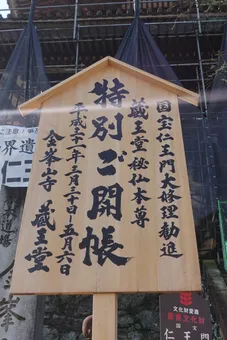 国宝仁王門大修理勧進
蔵王堂秘仏本尊
特別ご開帳
平成三十一年三月三十日~五月六日
金峯山寺 蔵王堂
界遺
金峯
文化財愛護
重要文化財
国宝
仁王門